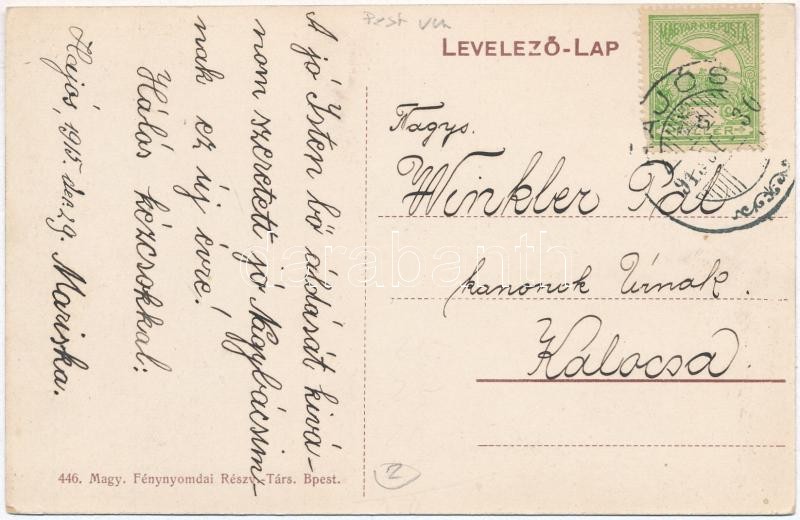 Pest vm
LEVELEZŐ-LAP
MAGYAR KIR. POSTA
HAJÓS
A jó Isten bő áldását kivá-
nom szeretett jó Nagybácsim-
nak ez új évre!
Hálás kézcsokkal:
Hajós, 1915. dec. 29. Mariska.
Nagys.
Winkler Pál
kanonok Úrnak.
Kalocsa
darabanth
446. Magy. Fénynyomdai Részv.-Társ. Bpest.
2